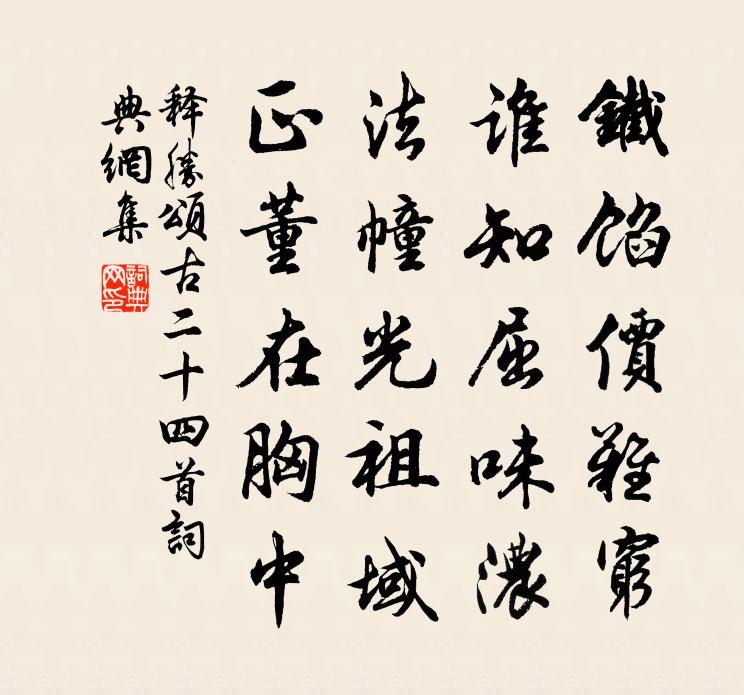 鐵餡價難窮
誰知屈味濃
法幢光祖域
正董在胸中
释勝頌古二十四首詞
典網集
詞典
网印